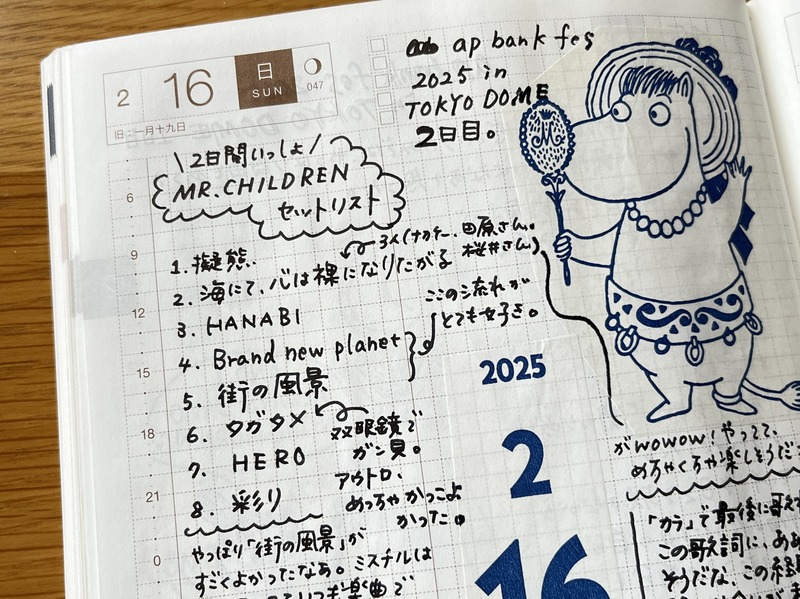 2
16
日
SUN
047
旧:一月十九日
ap bank fes
2025 in
TOKYO DOME
2日目。
\2日間いっしょ/
MR.CHILDREN
セットリスト
6
9
12
15
18
21
0
1. 擬態
2. 海にて、心は裸になりたがる
3人(ナカケー、田原さん。
桜井さん)
3. HANABI
4. Brand new planet
5. 街の風景
ここの流れが
とても好き。
6. タガタメ
7. HERO
8. 彩り
双眼鏡で
ガン見。
アウトロ、
めっちゃかっこよ
かった。
やっぱり「街の風景」が
すごくよかったなあ。ミスチルは
いつも楽曲で
2025
2
16
がwowow!やってて、
めちゃくちゃ楽しそうだ
「カラ」で最後に歌え
この歌詞に、ああ
そうだな、この経